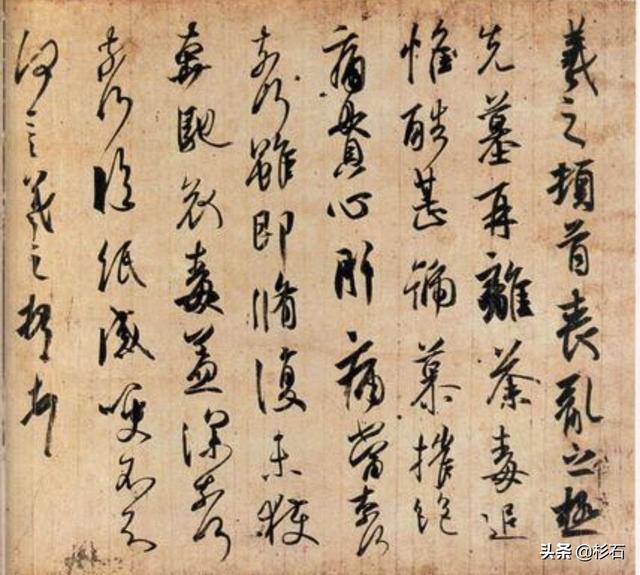 羲之頓首喪亂之極
先墓再離荼毒追
惟酷甚號慕摧絕
痛貫心肝痛當柰何
柰何雖即脩復未獲
奔馳哀毒益深柰何
柰何臨紙感哽不知
何言羲之頓首頓首
头条 @杉石